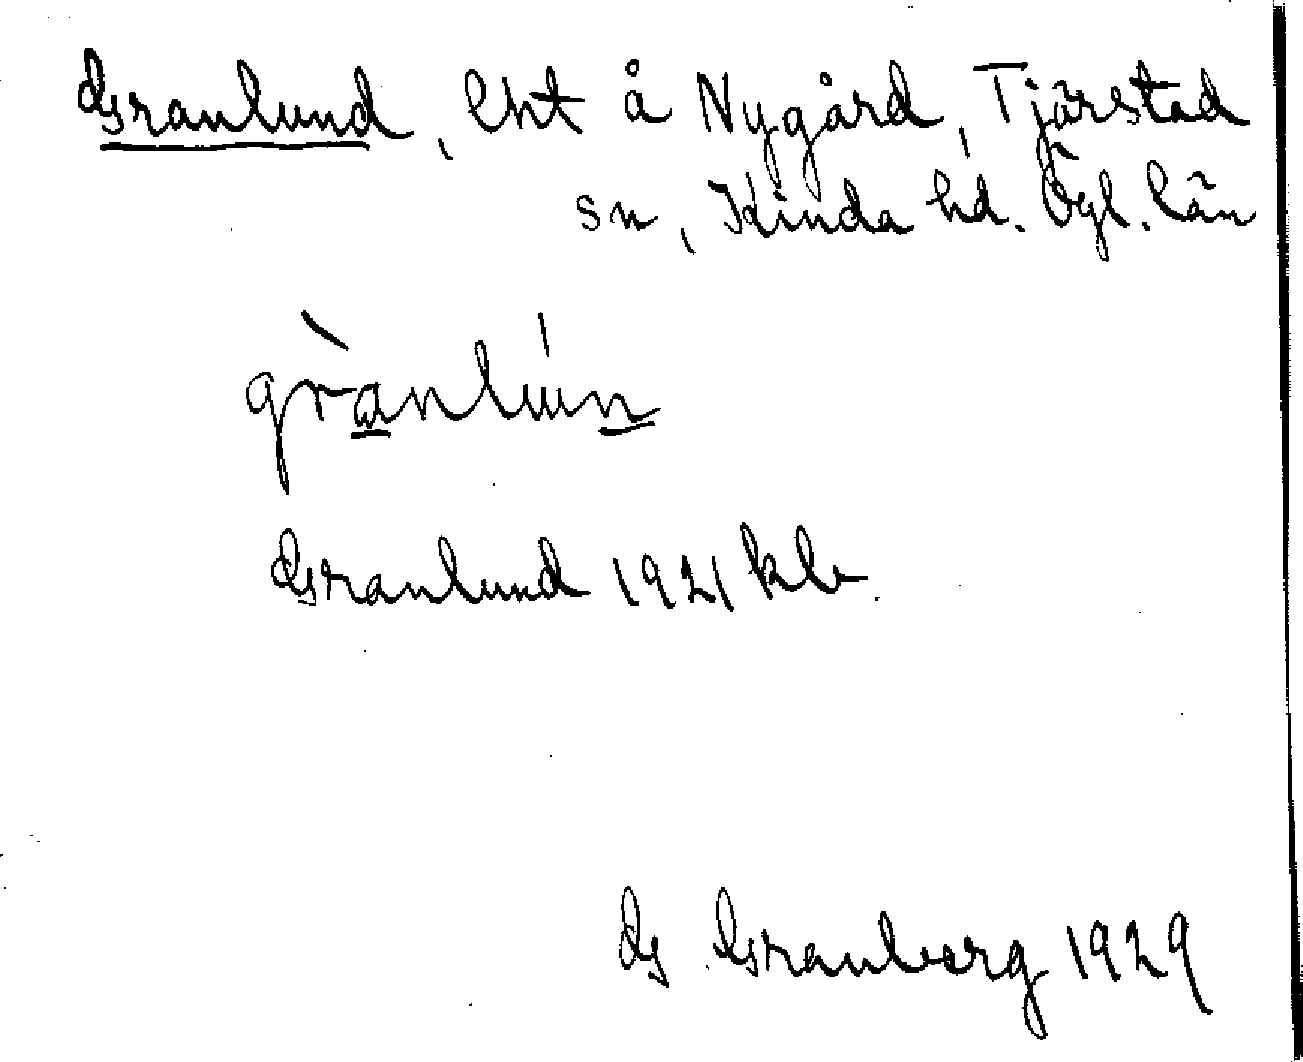 Granlund, lht å Nygård, Tjärstad
sn, Kinda hd. Ögl. län
grànlún
Granlund 1921 kb.
G. Granberg 1929